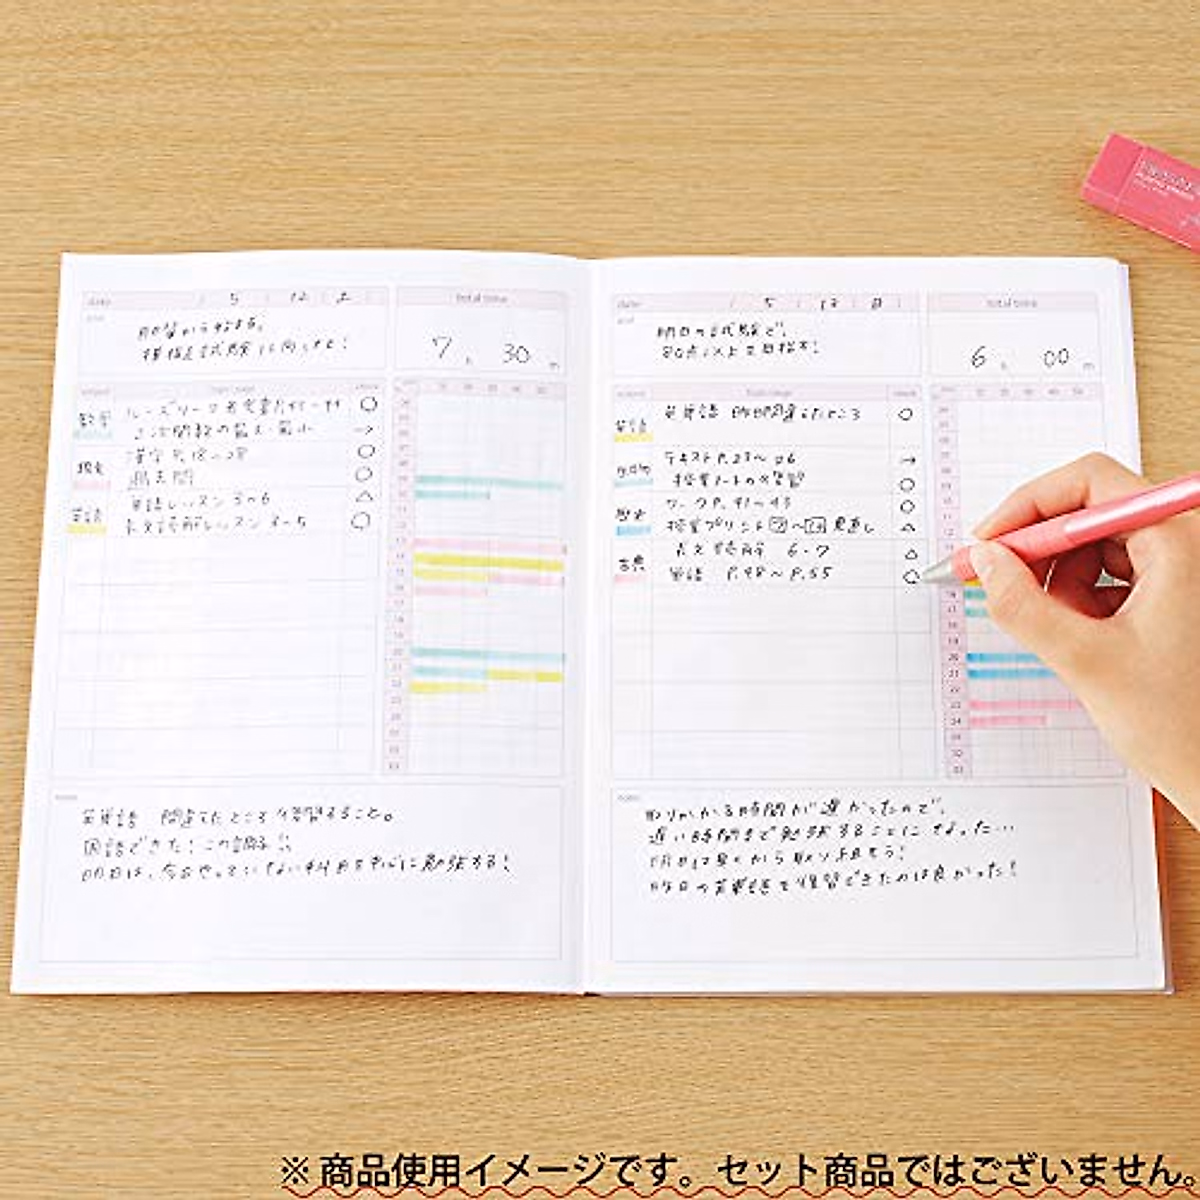 date / 5 / 12 / 土
total time
明日から始まる、
模擬試験に向けて!
7 h 30 m
数学
○
二次関数の最大・最小 →
現文
漢字 ○
過去問 ○
英語
単語レッスン 3~6 △
長文読解レッスン 3~5 ○
10 20 30 40 50
英単語 間違えたところ復習すること。
国語できた!この調子!!
明日は、今日やっていない科目を中心に勉強する!
date / 5 / 13 / 日
total time
明日の試験で、
80点以上を目指す!
6 h 00 m
英語
英単語 昨日間違えたところ ○
テキストP.23~26 →
授業ノートの復習 ○
歴史
ワークP.41~43 ○
授業プリント ~ 見直し △
古典
長文読解 6・7 △
単語 P.48~P.55 ○
10 20 30 40 50
notes
取りかかる時間が遅かったので、
遅い時間まで勉強することになった…
明日は早くから取り組もう!
昨日の英単語を復習できたのは良かった!
※商品使用イメージです。セット商品ではございません。